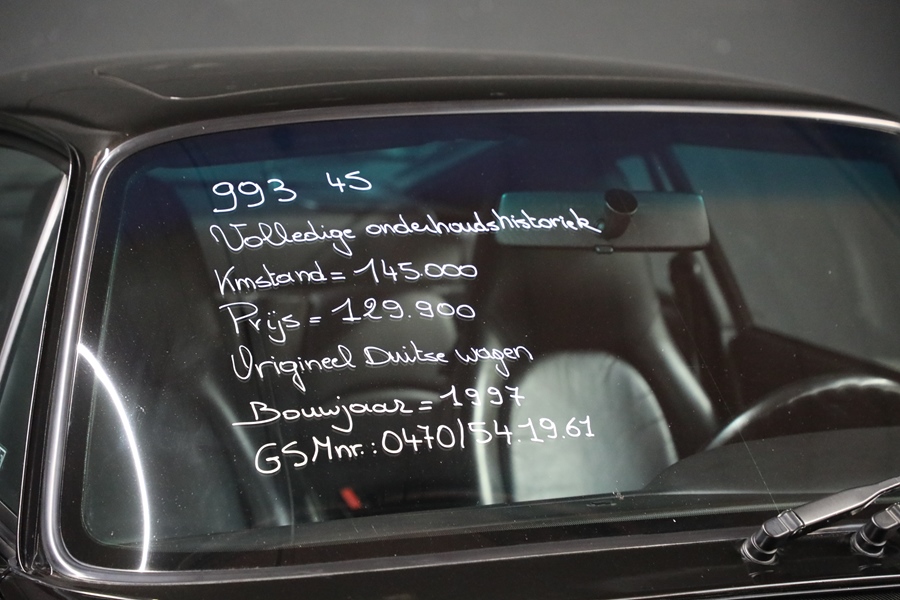 993 4S
Volledige onderhoudshistoriek
Kmstand = 145.000
Prijs = 129.900
Origineel Duitse wagen
Bouwjaar = 1997
GSMnr.: 0470/54.19.61